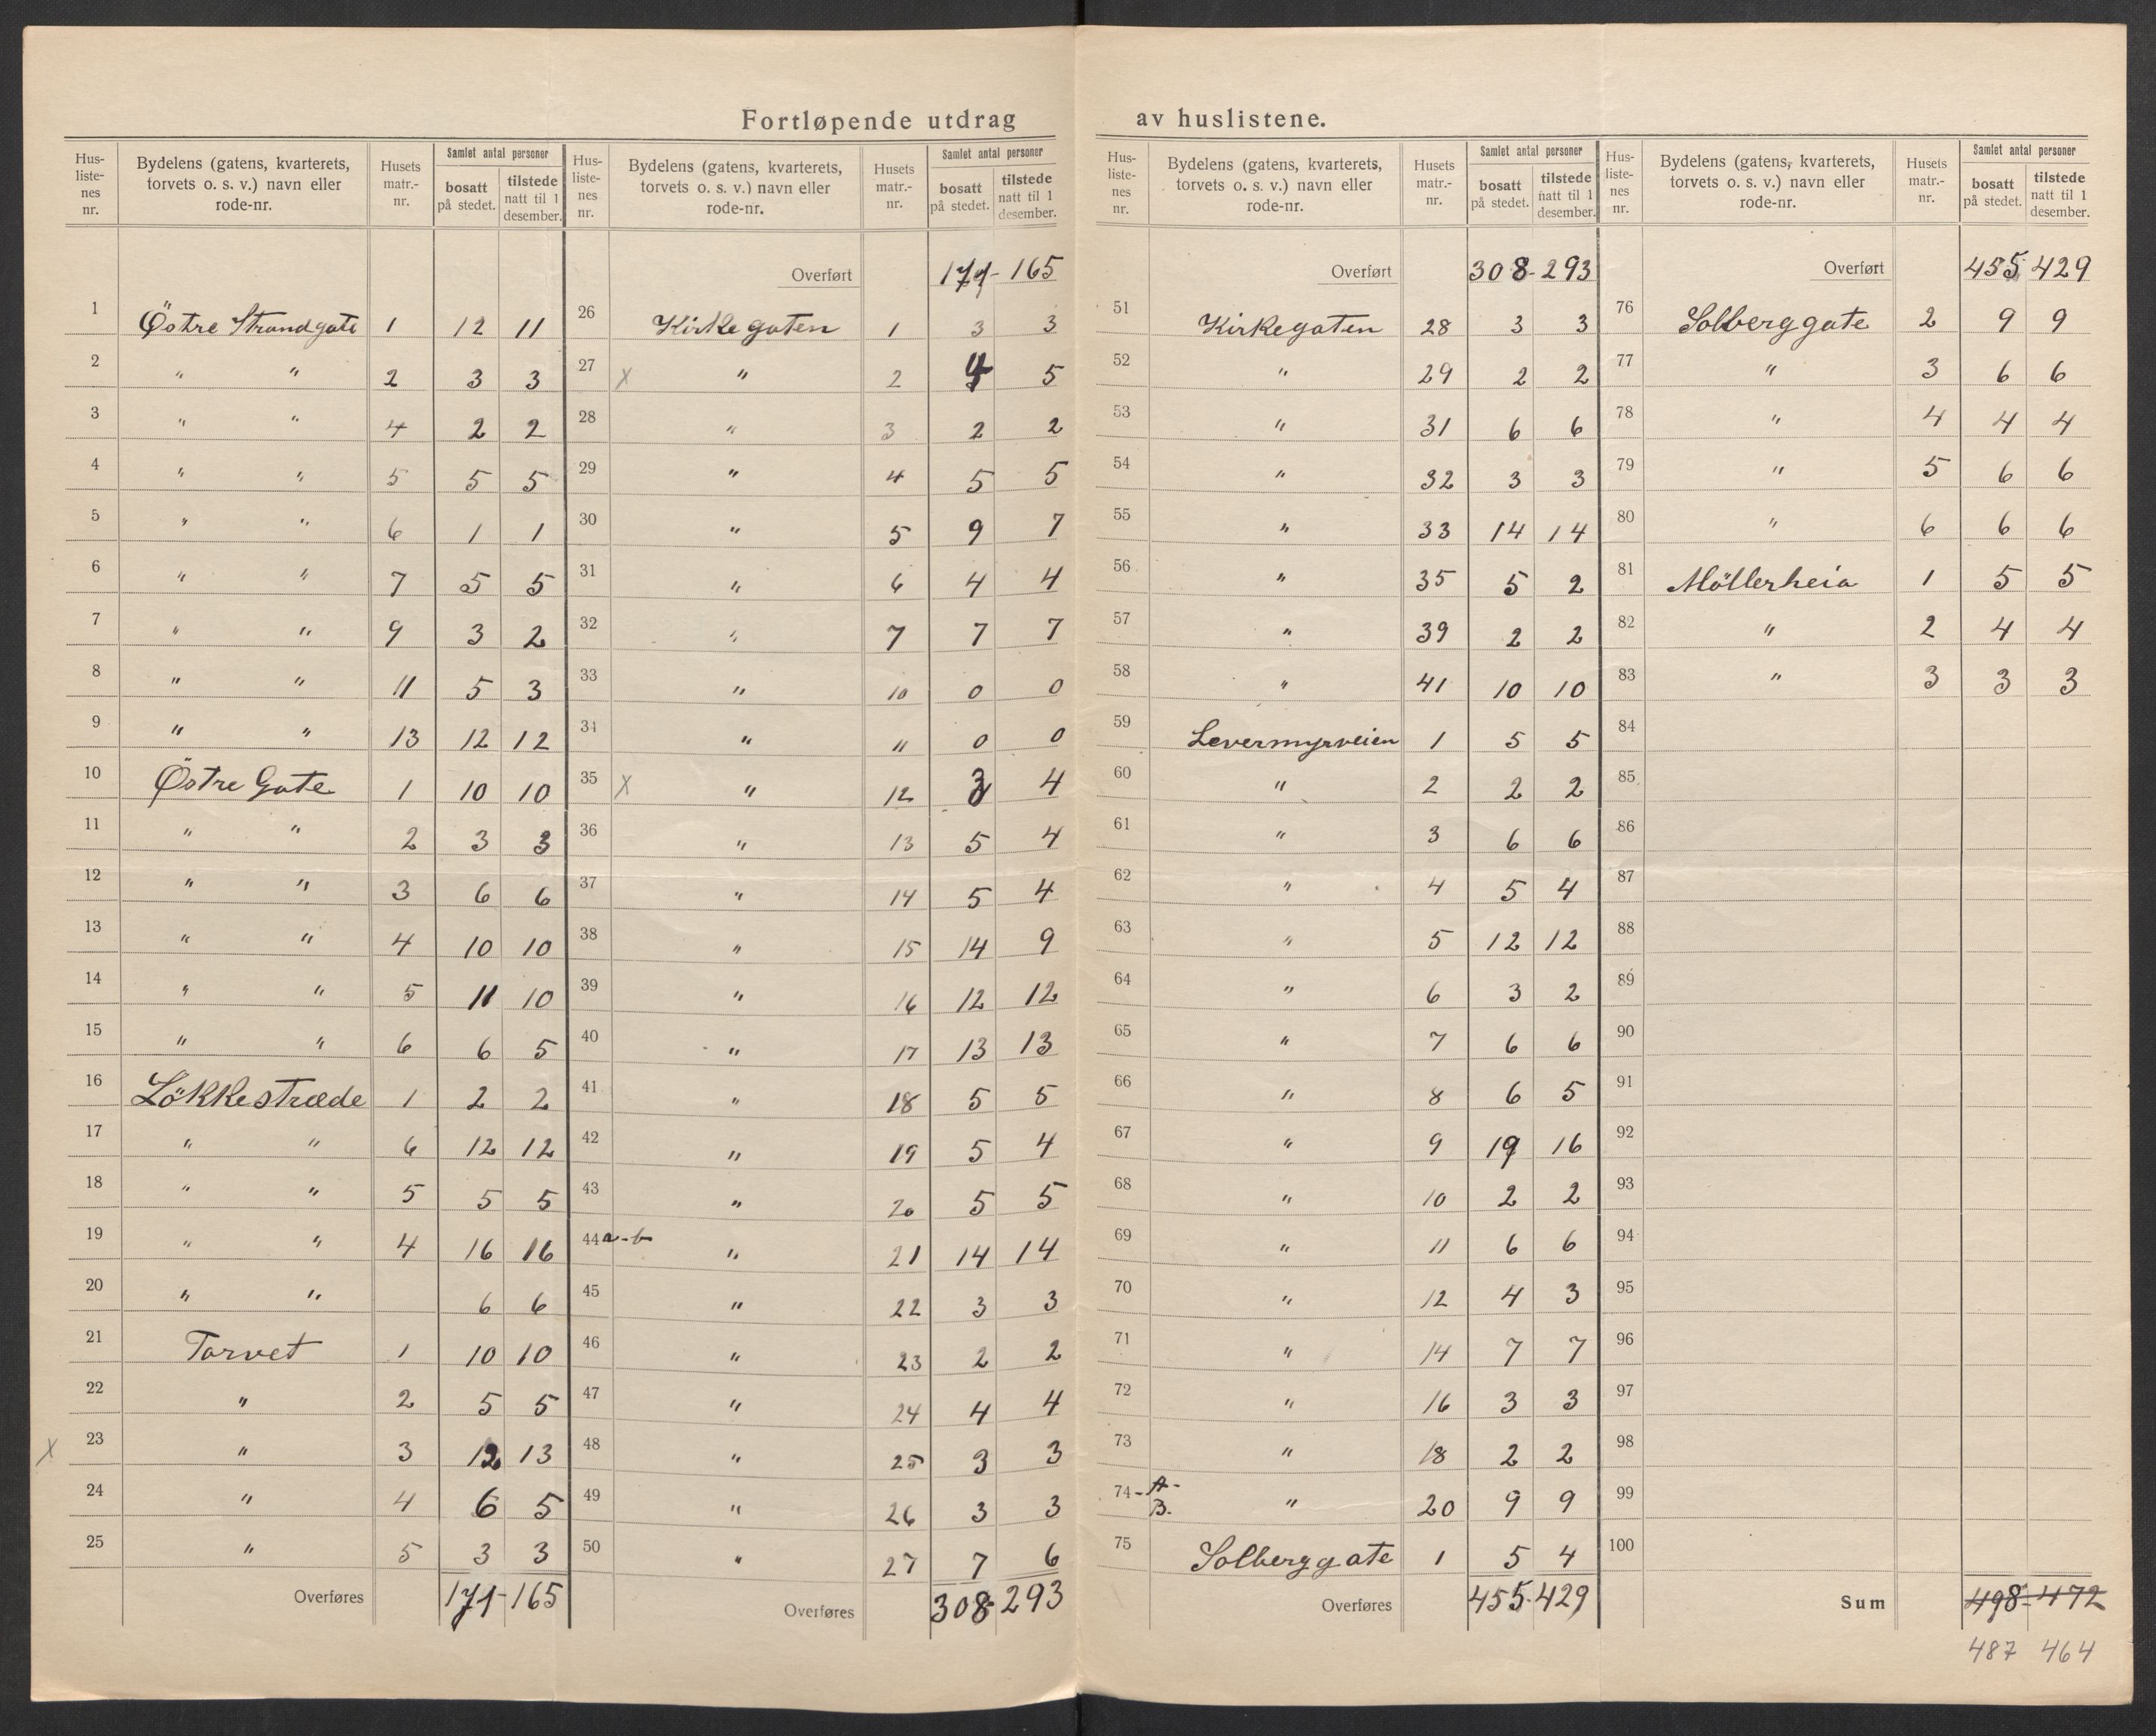 Fortløpende utdrag av huslistene.
Hus-liste-nes nr. | Bydelens (gatens, kvarterets, torvets o. s. v.) navn eller rode-nr. | Husets matr.-nr. | Samlet antal personer bosatt på stedet. | tilstede natt til 1 desember.
1 Östre Strandgate 1 12 11
2 " " 2 3 3
3 " " 4 2 2
4 " " 5 5 5
5 " " 6 1 1
6 " " 7 5 5
7 " " 9 3 2
8 " " 11 5 3
9 " " 13 12 12
10 Östre Gate 1 10 10
11 " " 2 3 3
12 " " 3 6 6
13 " " 4 10 10
14 " " 5 11 10
15 " " 6 6 5
16 Lökkestræde 1 2 2
17 " " 6 12 12
18 " " 5 5 5
19 " " 4 16 16
20 " " 6 6
21 Torvet 1 10 10
22 " 2 5 5
X 23 " 3 12 13
24 " 4 6 5
25 " 5 3 3
Overføres 171-165
Hus-liste-nes nr. | Bydelens (gatens, kvarterets, torvets o. s. v.) navn eller rode-nr. | Husets matr.-nr. | Samlet antal personer bosatt på stedet. | tilstede natt til 1 desember.
Overført 171-165
26 Kirkegaten 1 3 3
27 X " 2 4 5
28 " 3 2 2
29 " 4 5 5
30 " 5 9 7
31 " 6 4 4
32 " 7 7 7
33 " 10 0 0
34 " 11 0 0
35 X " 12 3 4
36 " 13 5 4
37 " 14 5 4
38 " 15 14 9
39 " 16 12 12
40 " 17 13 13
41 " 18 5 5
42 " 19 5 4
43 " 20 5 5
44 a-b " 21 14 14
45 " 22 3 3
46 " 23 2 2
47 " 24 4 4
48 " 25 3 3
49 " 26 3 3
50 " 27 7 6
Overføres 308-293
Hus-liste-nes nr. | Bydelens (gatens, kvarterets, torvets o. s. v.) navn eller rode-nr. | Husets matr.-nr. | Samlet antal personer bosatt på stedet. | tilstede natt til 1 desember.
Overført 308-293
51 Kirkegaten 28 3 3
52 " 29 2 2
53 " 31 6 6
54 " 32 3 3
55 " 33 14 14
56 " 35 5 2
57 " 39 2 2
58 " 41 10 10
59 Levermyrveien 1 5 5
60 " 2 2 2
61 " 3 6 6
62 " 4 5 4
63 " 5 12 12
64 " 6 3 2
65 " 7 6 6
66 " 8 6 5
67 " 9 19 16
68 " 10 2 2
69 " 11 6 6
70 " 12 4 3
71 " 14 7 7
72 " 16 3 3
73 " 18 2 2
74 - A - B. " 20 9 9
75 Solberggate 1 5 4
Overføres 455-429
Hus-liste-nes nr. | Bydelens (gatens, kvarterets, torvets o. s. v.) navn eller rode-nr. | Husets matr.-nr. | Samlet antal personer bosatt på stedet. | tilstede natt til 1 desember.
Overført 455-429
76 Solberggate 2 9 9
77 " 3 6 6
78 " 4 4 4
79 " 5 6 6
80 " 6 6 6
81 Möllerheia 1 5 5
82 " 2 4 4
83 " 3 3 3
84
85
86
87
88
89
90
91
92
93
94
95
96
97
98
99
100
Sum 498-472
487 464